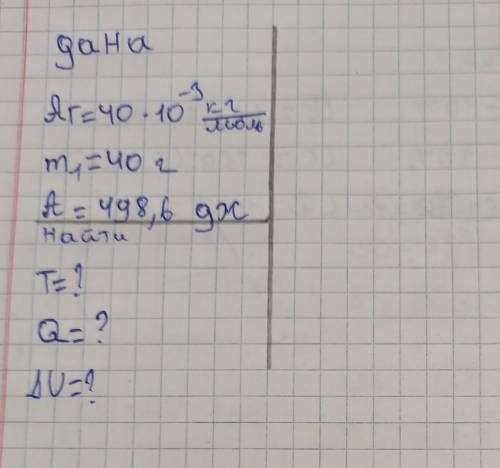 дана
Ar=40·10⁻³ кг/моль
m₁=40 г
A = 498,6 дж
найти
T=?
Q=?
ΔU=?